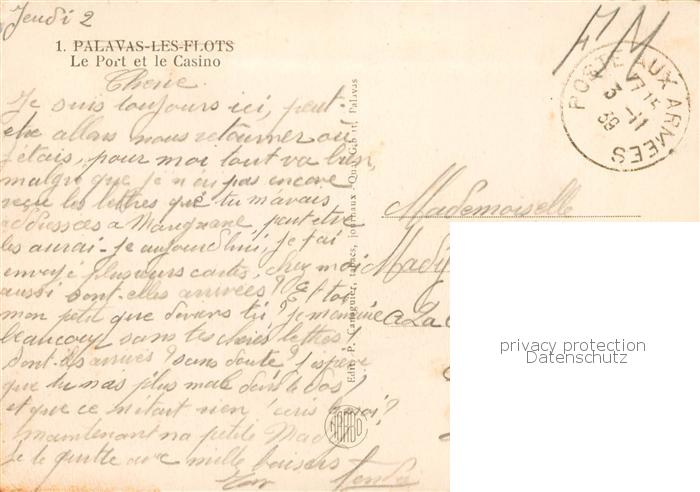 Jeudi 2
1. PALAVAS-LES-FLOTS
Le Port et le Casino
Cherie
Je suis toujours ici, peut-
etre allons nous retourner où
j'étais, pour moi tout va bien,
malgré que je n'ai pas encore
reçu les lettres que tu m'avais
adressées a Marignane, peut etre
les aurai-je aujourd'hui, je t'ai
envoyé plusieurs cartes, chez moi
aussi sont-elles arrivées? Et toi
mon petit que deviens tu? je m'ennuie
beaucoup sans tes cheres lettres!
Sont-ils arrivés? sans doute? j'espère
que tu n'as plus mal dans le dos,
et que ce n'était rien, écris moi?
maintenant ma petite Mad
Je te quitte avec mille baisers
Ton
FM
POSTE AUX ARMEES
3-11
39
Mademoiselle
Mady
a La
Edit. P. journaux - Quai Palavas
privacy protection
Datenschutz